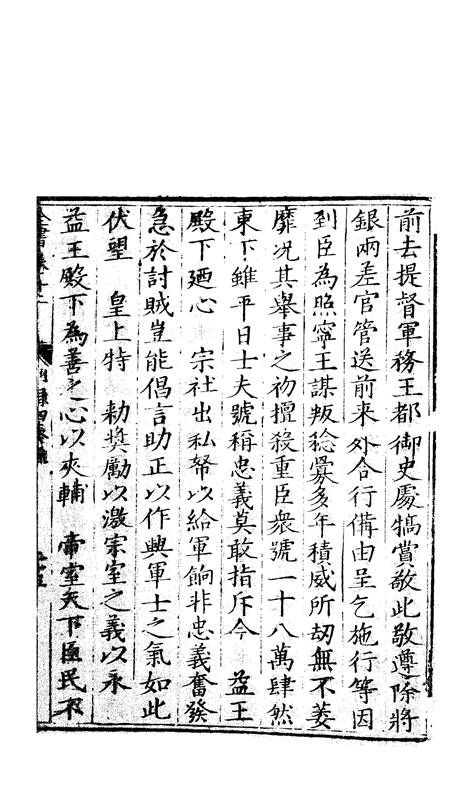 前去提督軍務王都御史處犒賞敬此敬遵除將
銀兩差官管送前来外合行備由呈乞施行等因
到臣為照寧王謀叛稔釁多年積威所刼無不萎
靡况其舉事之初擅殺重臣衆號一十八萬肆然
東下雖平日士夫號稱忠義莫敢指斥今 益王
殿下廼心 宗社出私帑以給軍餉非忠義奮發
急於討賊豈能倡言助正以作興軍士之氣如此
伏望 皇上特 勑奬勵以激宗室之義以永
益王殿下為善之心以夾輔 帝室天下臣民不